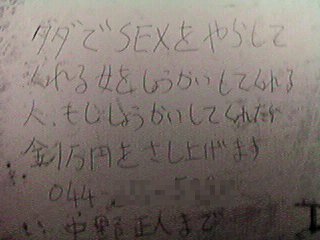 タダでSEXをやらして
くれる女をしょうかいしてくれる
人、もししょうかいしてくれたら
金1万円をさし上げます
044-
中野正人まで